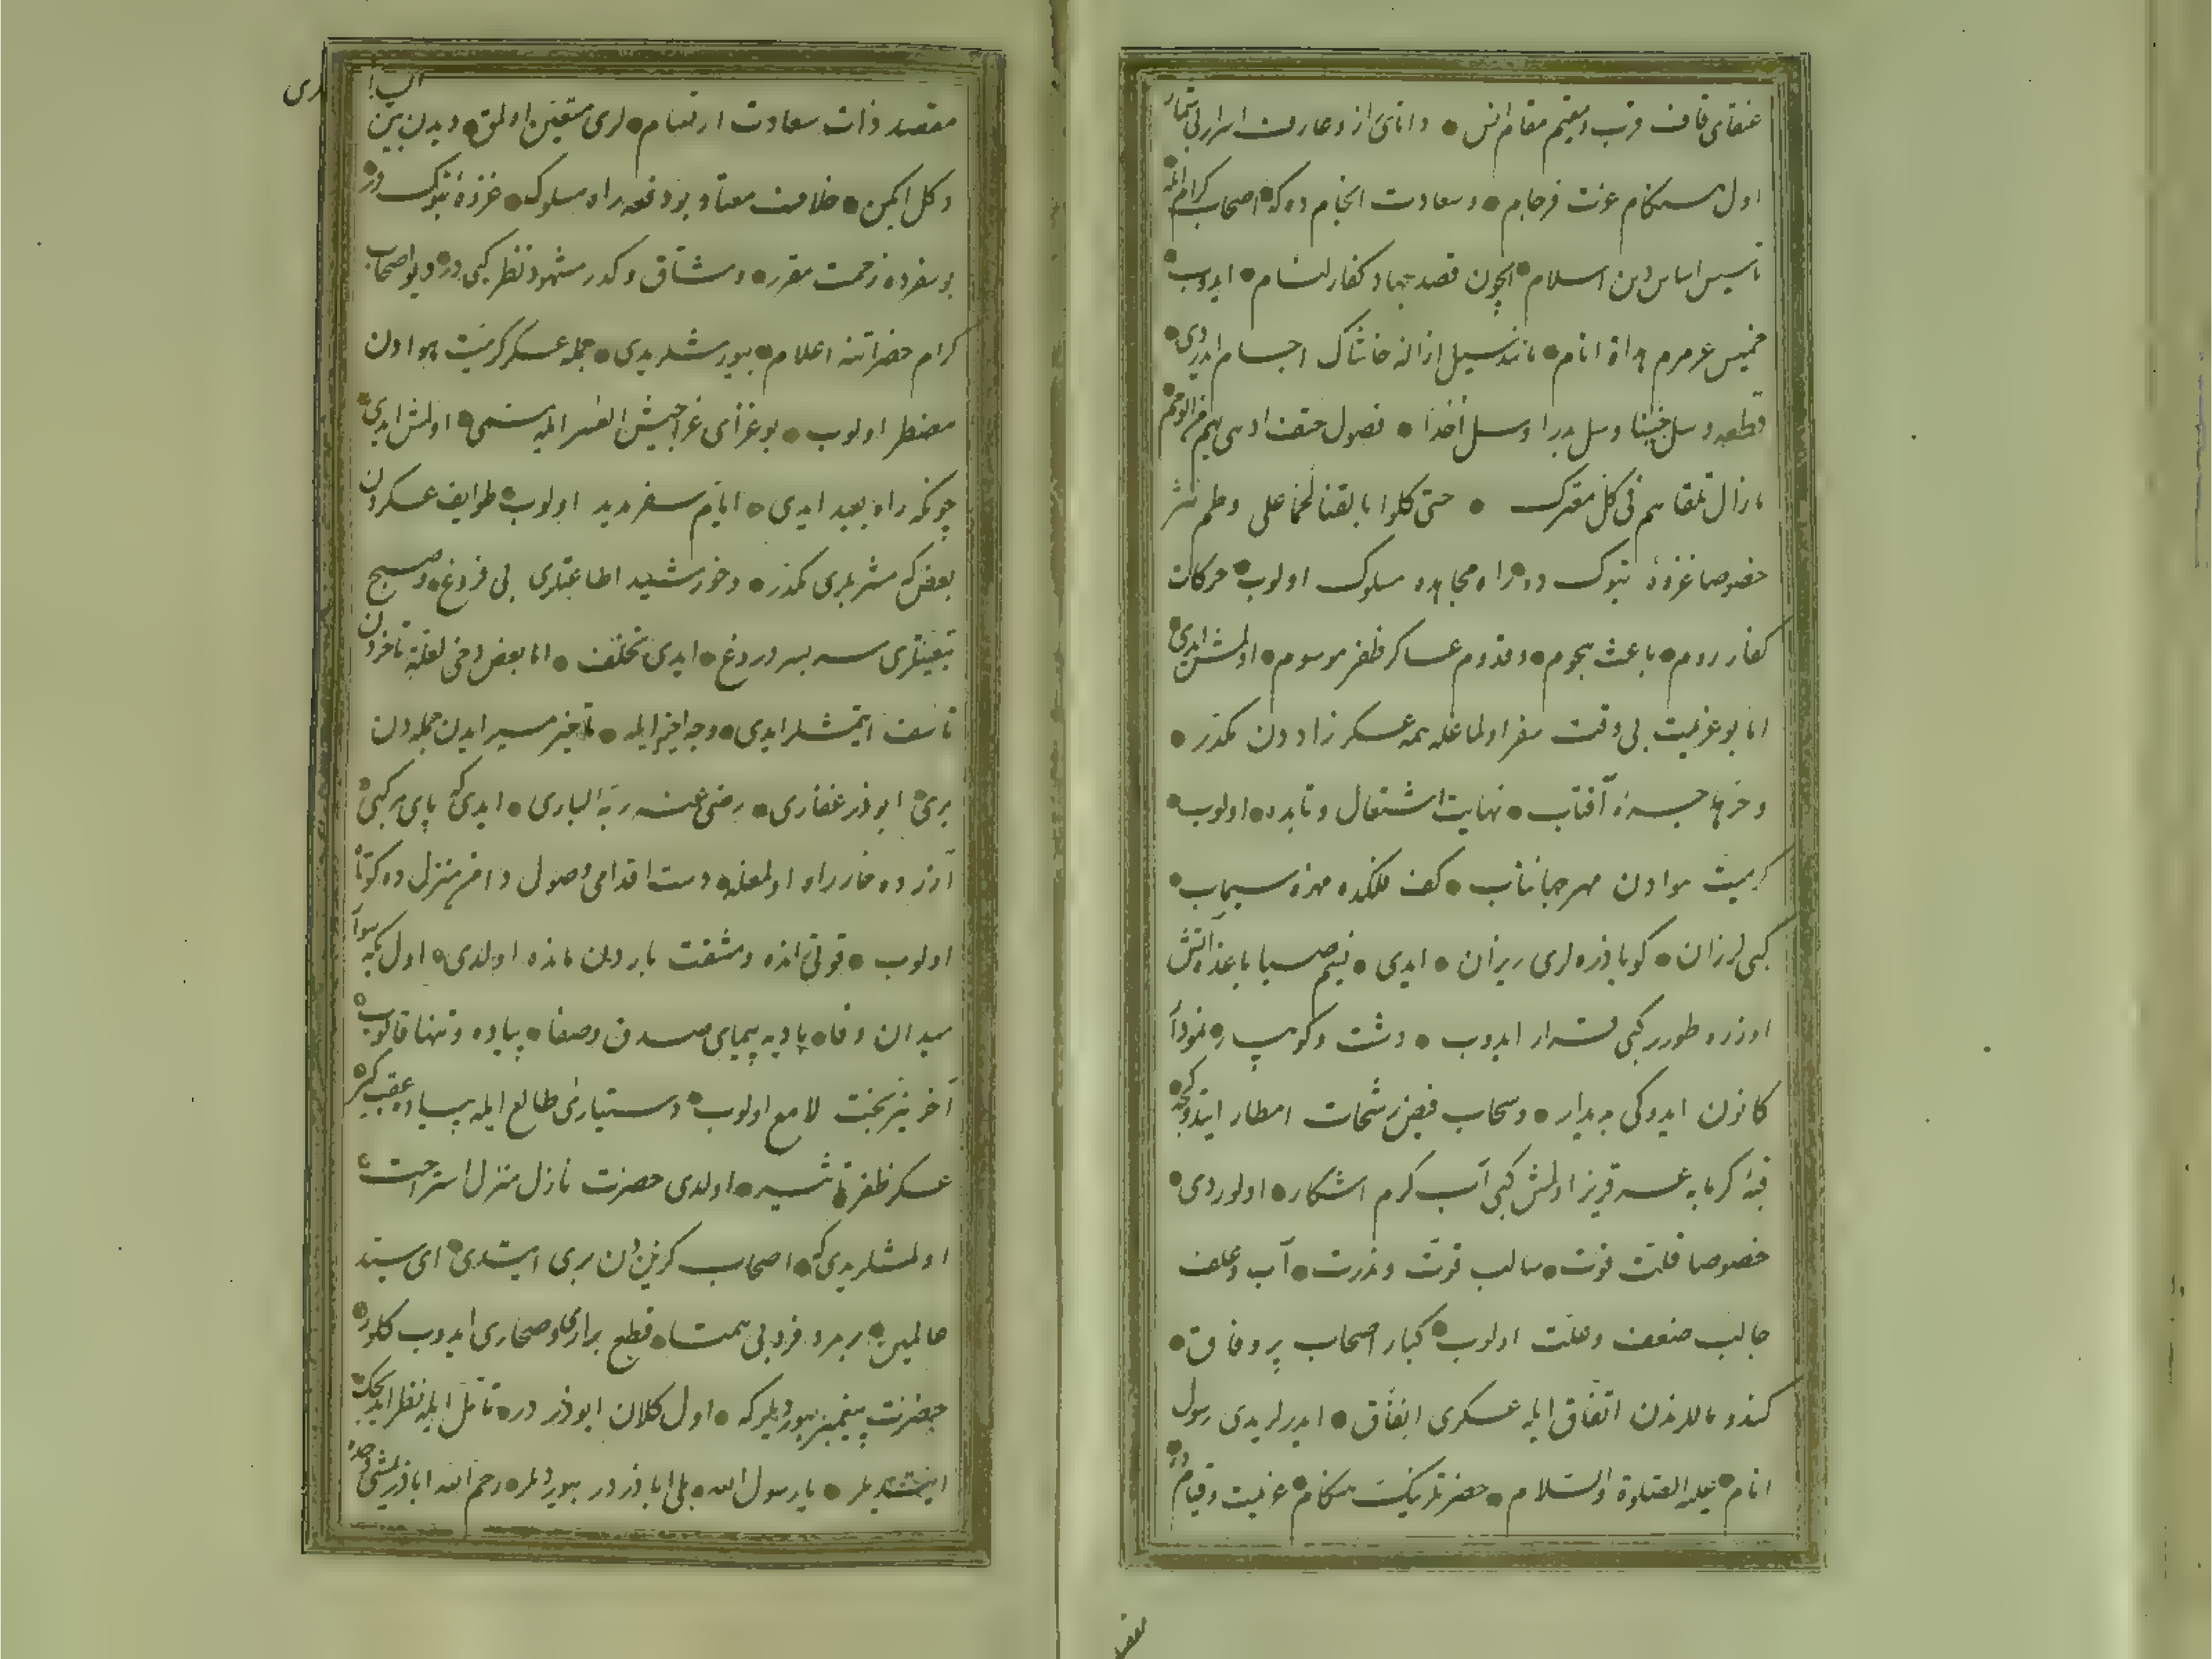 عنقای قاف قرب و مقیم مقام انس • دانای راز و عارف اسرار بی شمار
اول هنکام عزت فرجام • و سعادت انجام ده که • اصحاب کرام ایله
تأسیس اساس دین اسلام • ایچون قصد جهاد کفار لئام • ایدوب •
خمیس عرمرم هداة انام • مانند سیل ازاله خاشاک اجسام ایدردی •
قطعه وسل حنینا وسل بدرا وسل أحدا • فصول حتف ادهی لهم من الوخم
مازال تلقاهم فی کل معترک • حتی حکوا بالقنا لحما علی وضم نثر
خصوصا غزوۀ تبوک ده • راه مجاهده مسلوک اولوب • حرکات
کفار روم • باعث هجوم • و قدوم عساکر ظفر موسوم • اولمش ایدی •
اما بو عزیمت بی وقت سفر اولماغله همه عسکر زاد دن مکدر •
آفتاب • نهایت اشتعال و تابده • اولوب •
کرمیت هوادن مهر جهانتاب • کف فلکده مهرۀ سیماب •
کبی لرزان • کویا ذره لری ریزان • ایدی • نسیم صبا یاغدۀ آتش
اوزره طورر کبی قرار ایدوب • دشت و کوهسار •
کانون ایدوکی پدیدار • و سحاب فیض رشحات امطار ایتدوکجه •
قبۀ کرمابه عرقریز اولمش کبی آب کرم اشکار • اولوردی •
خصوصا قلت قوت • سالب قوت و قدرت • آب و علف
جالب ضعف و علت اولوب • کبار اصحاب پر وفاق •
کندو ماللرندن اتفاق ایله عسکری انفاق • ایدرلریدی رسول
انام • علیه الصلوة والسلام • حضرتلرینک هنکام • عزیمت و قیام ده •
مقصد
مقصد ذات سعادت ارتسام • لری متعین اولمق • دیدن بین
دکل ایکن • خلاف معتاد بو دفعه راه مسلوک • غزوۀ تبوک در •
بو سفرده زحمت مقرر • و مشاق و کدر مشهود نظر کبی در • دیو اصحاب
کرام حضراتنه اعلام • بیورمشلریدی • جمله عسکر کرمیت هوادن
مضطر اولوب • بو غزای غرا جیش العسر ایله مسمی • اولمش ایدی •
چونکه راه بعید ایدی • ایام سفر مدید اولوب • طوایف عسکردن
بعض که مشربلری مکدر • و خورشید اطاعتلری بی فروغ • و صبح
تبعیتلری سربسر دروغ • ایدی تخلف • اما بعض دخی لعلة تأخردن
تأسف ایتمشلر ایدی • و جه اخیر ایله • تأخیر مسیر ایدن جمله دن
بری • ابوذر غفاری • رضی عنه ربه الباری • ایدی که پای مرکبی •
آزرده خار راه اولمغله • دست اقدامی وصول دامن منزل ده کوتاه
اولوب • قوتی انده و مشقت بار دن مانده اولدی • اول یکه سوار
میدان وفا • بادیه پیمای صدق و صفا • پیاده و تنها قالوب •
آخر نیر بخت لامع اولوب • دستیارئ طالع ایله پیاده عقب کیر •
عسکر ظفر تأثیر • اولدی حضرت نازل منزل استراحت •
اولمشلریدی که • اصحاب کرین دن بری ایتدی • ای سید
عالمین • بر مرد فرد بی همتا • قطع براری و صحاری ایدوب کلور •
حضرت پیغمبر بیوردیلر که • اول کلان ابوذر در • تأمل ایله نظر ایدیجک
ایتدیلر • یا رسول الله • بلی اباذر در بیوردیلر • رحم الله اباذر یمشی وحده